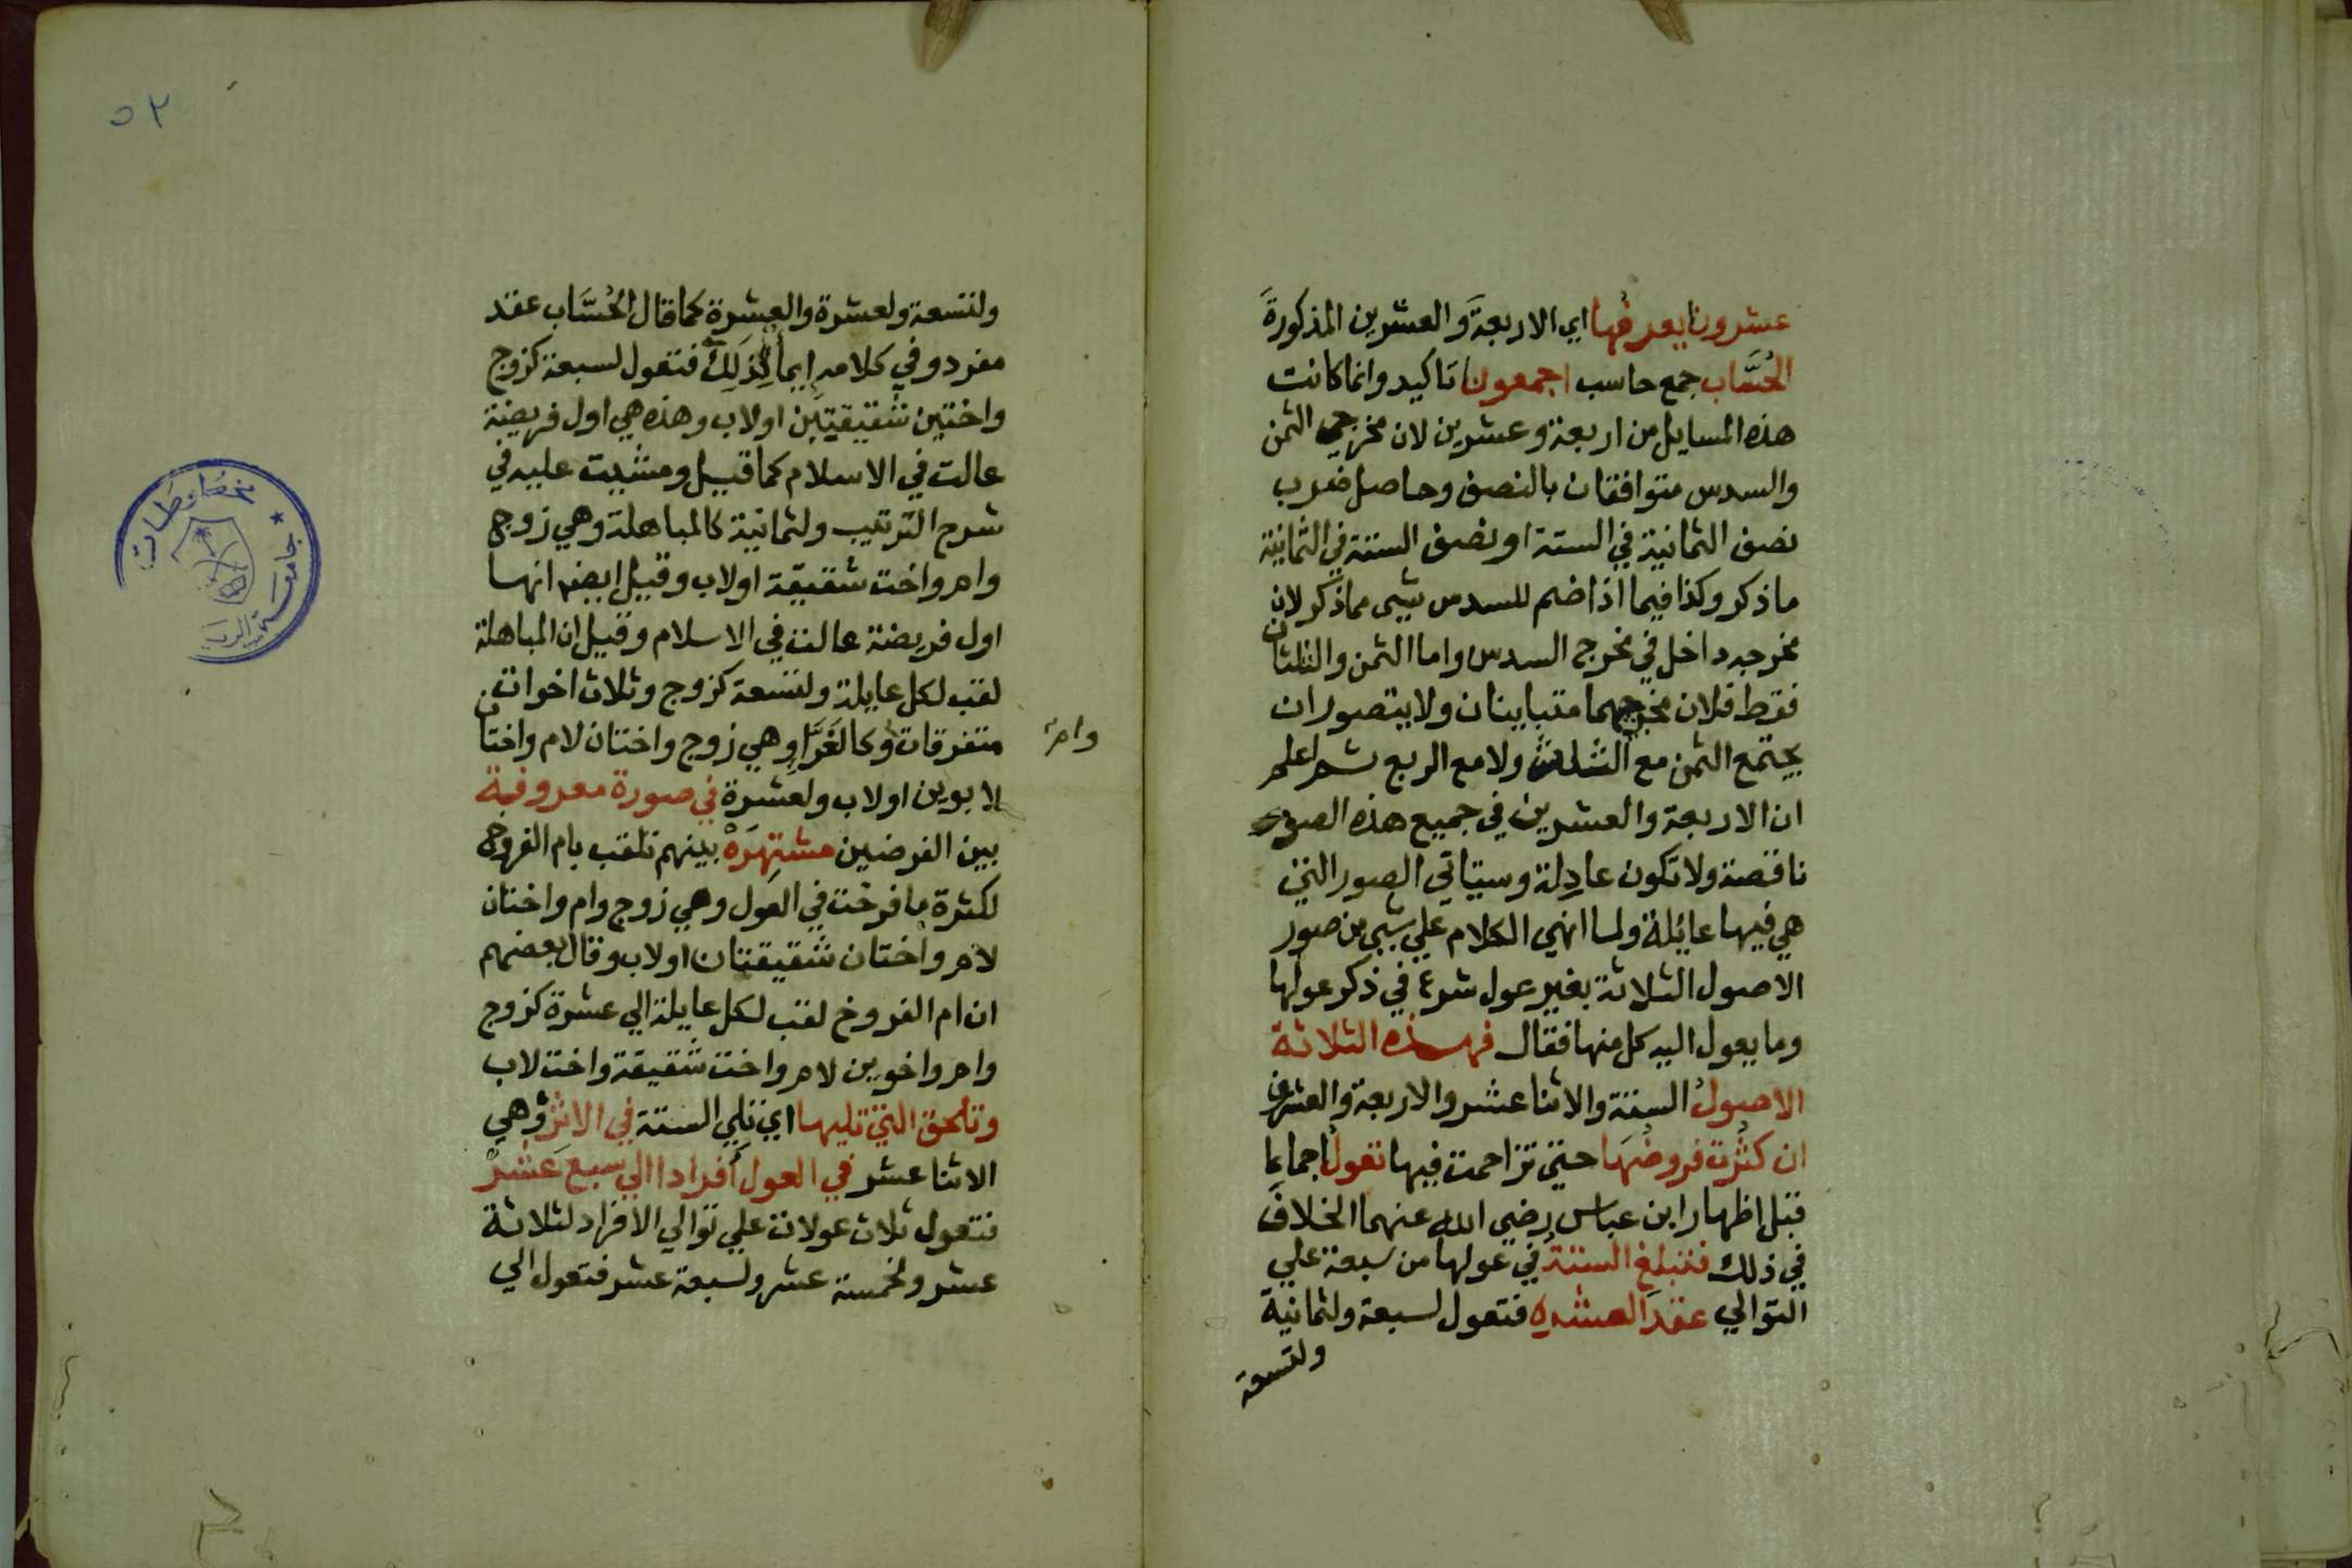 عشرون يعرفها اي الاربعة والعشرين المذكورة
الحُسَّاب جمع حاسب اجمعون تاكيد وانما كانت
هذه المسايل من اربعة وعشرين لان مخرجي الثمن
والسدس متوافقان بالنصف وحاصل ضرب
نصف الثمانية في الستة او نصف الستة في الثمانية
ما ذكر وكذا فيما اذا ضم للسدس شيى مما ذكر لان
مخرجه داخل في مخرج السدس واما الثمن والثلثان
فقط فلان مخرجيهما متباينان ولا يتصور ان
يجتمع الثمن مع الثلث ولا مع الربع ثم اعلم
ان الاربعة والعشرين في جميع هذه الصور
ناقصة ولا تكون عادلة وسياتي الصور التي
هي فيها عائلة ولما انهي الكلام علي شيى من صور
الاصول الثلاثة بغير عول شرع في ذكر عولها
وما يعول اليه كل منها فقال فهذه الثلاثة
الاصول الستة والاثنا عشر والاربعة والعشرون
ان كثرت فروضها حتي تزاحمت فيها تعول اجماعا
قبل اظهار ابن عباس رضي الله عنهما الخلاف
في ذلك فتبلغ الستة في عولها من سبعة علي
التوالي عقد العشره فتعول لسبعة ولثمانية
ولتسعة
٥٢
ولتسعة ولعشرة والعشرة كما قال الحُسَّاب عقد
مفرد وفي كلامه ايماً لِذَلِكَ فتعول لسبعة كزوج
واختين شقيقيتين اولاب وهذه هي اول فريضة
عالت في الاسلام كما قيل ومشيت عليه في
شرح الترتيب ولثمانية كالمباهلة وهي زوج
وام واخت شقيقة اولاب وقيل ايضا انها
اول فريضة عالت في الاسلام وقيل ان المباهلة
لقب لكل عايلة ولتسعة كزوج وثلاث اخوات
متفرقات وكالغَرَّاءِ وهي زوج واختان لام واختان
وام
لابوين اولاب ولعشرة في صورة معروفة
بين الفرضيين مشتهرَهْ بينهم تلقب بام الفروخ
لكثرة ما فرخت في العول وهي زوج وام واختان
لام واختان شقيقتان اولاب وقال بعضهم
ان ام الفروخ لقب لكل عايلة الي عشرة كزوج
وام واخوين لام واخت شقيقة واخت لاب
وتلحق التي تليها اي تلي الستة في الاثر وهي
الاثنا عشر في العول أفرادا الي سبع عَشَرْ
فتعول ثلاث عولات علي توالي الافراد لثلاثة
عشر ولخمسة عشر ولسبعة عشر فتعول الي
مخطوطات
جامعة